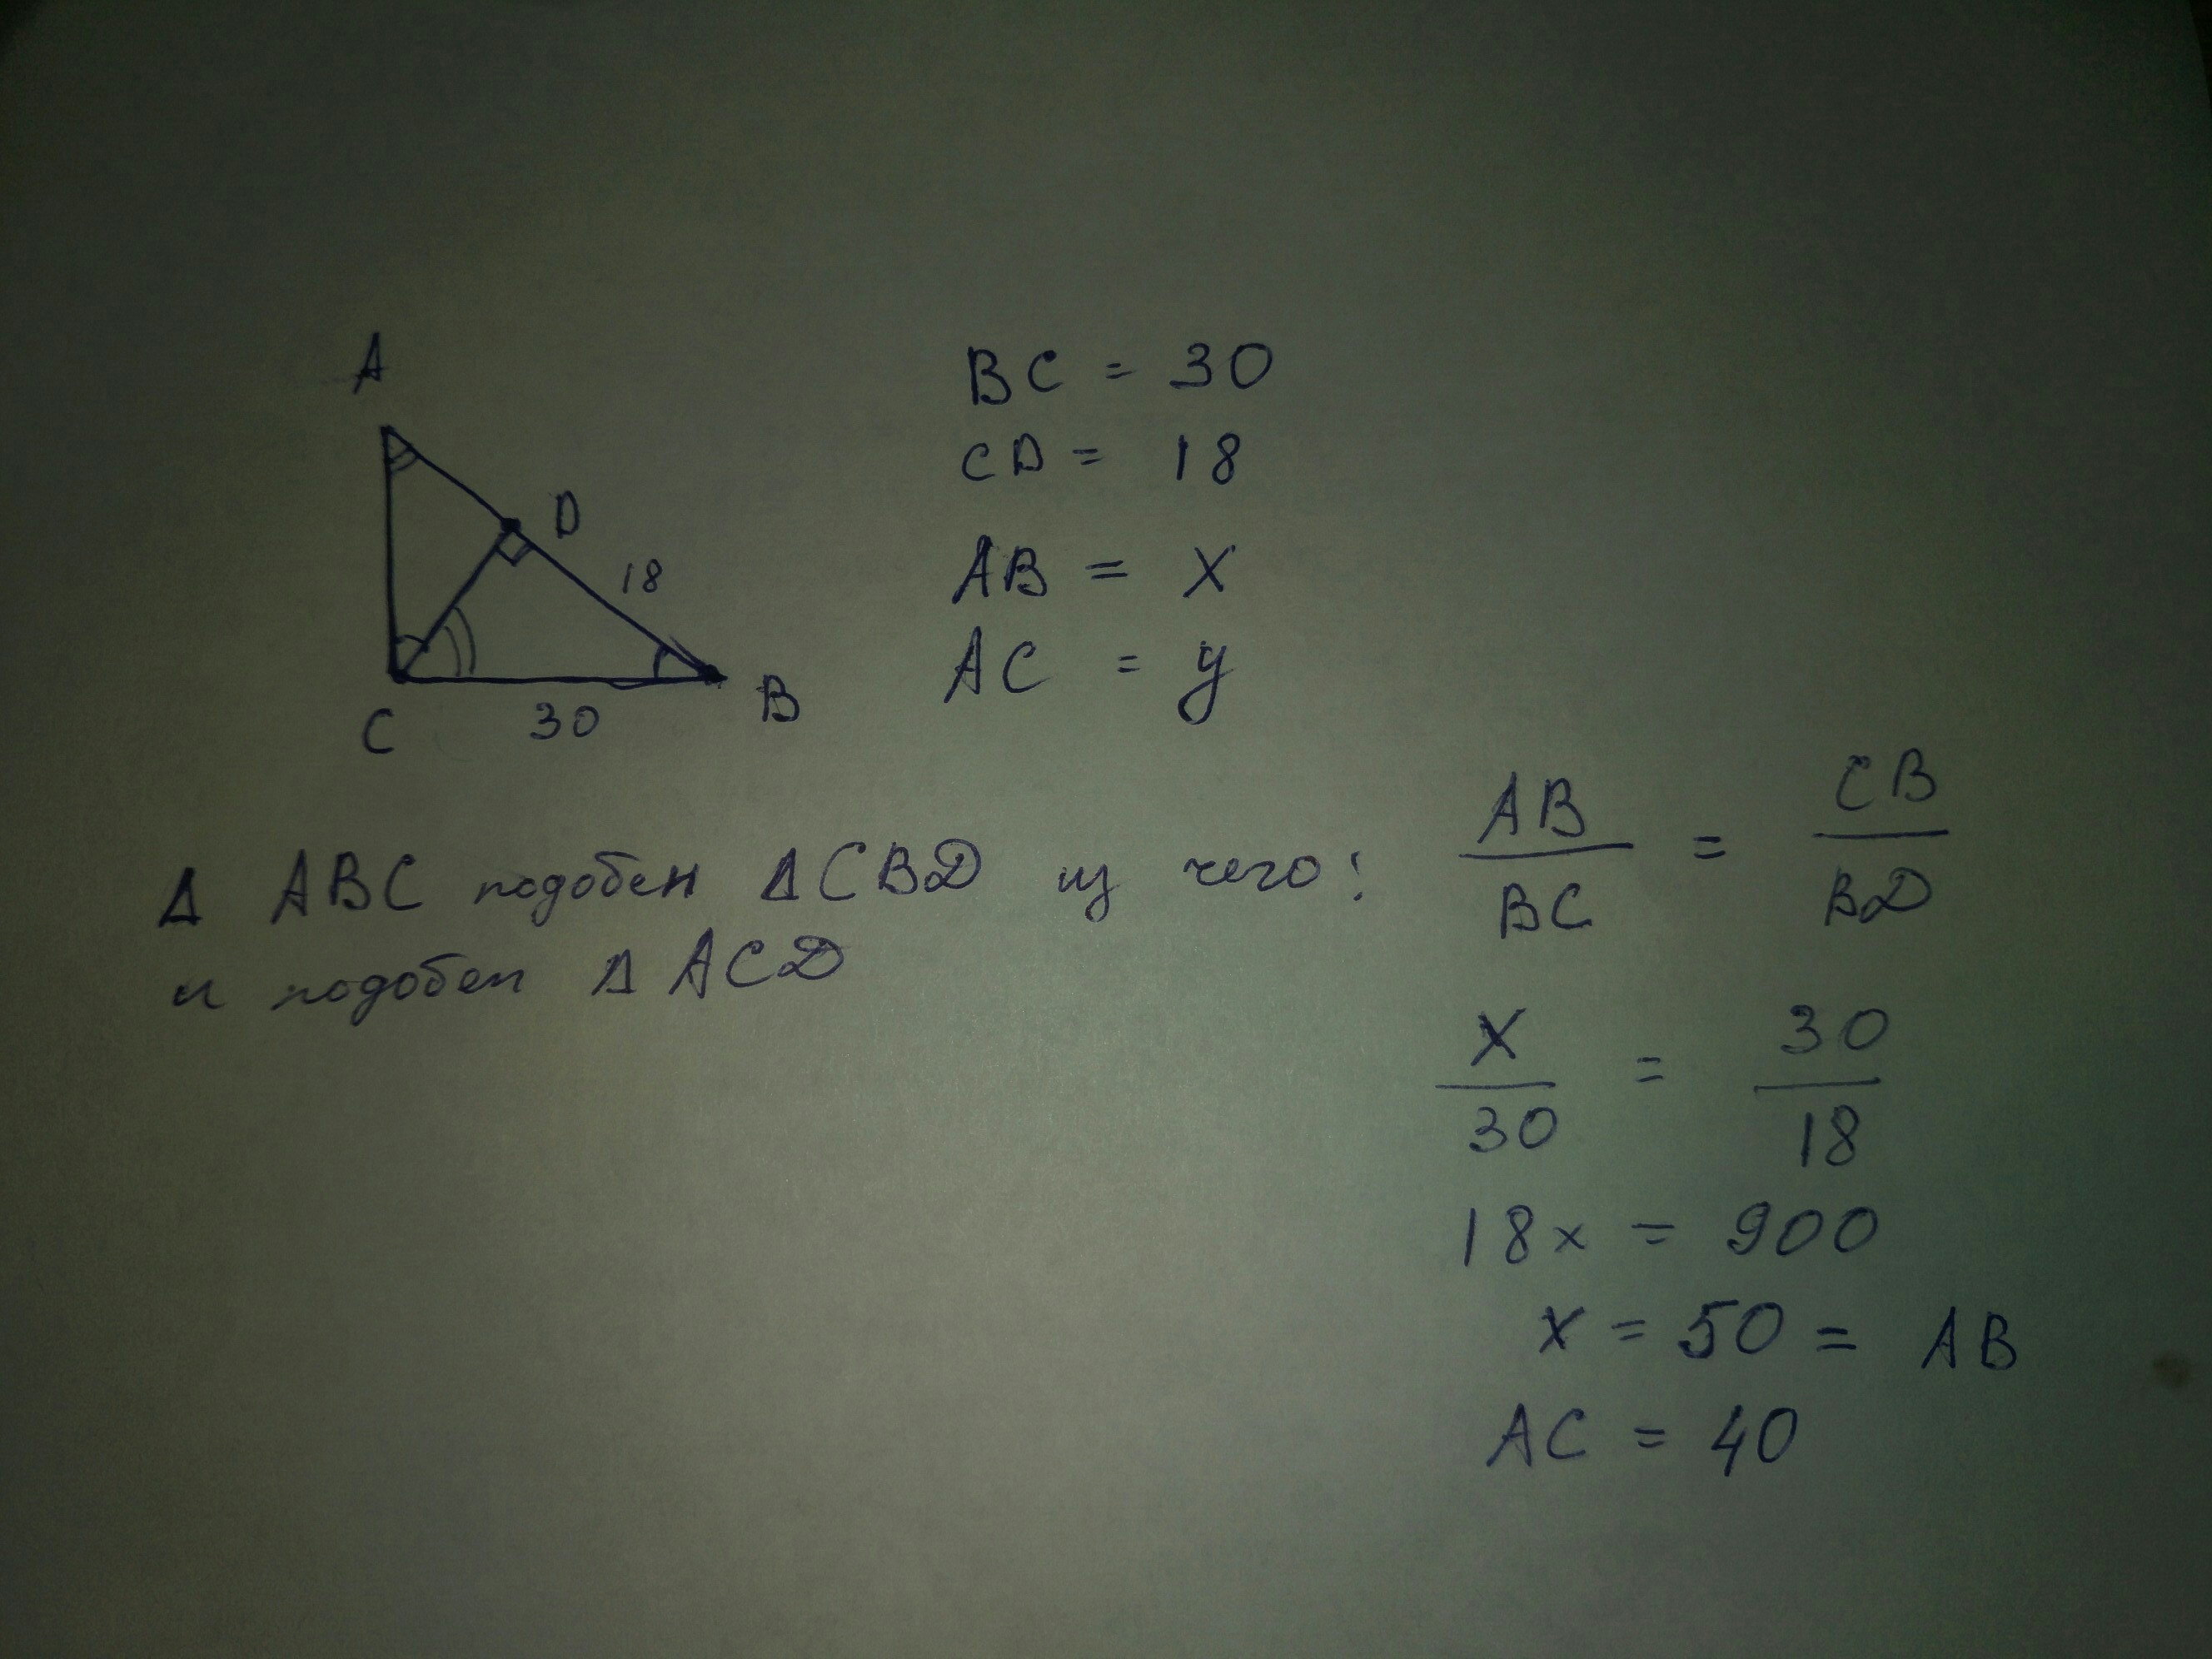 A
D
18
C
30
B
BC = 30
CD = 18
AB = x
AC = y
Δ ABC подобен ΔCBD из чего:
и подобен Δ ACD
AB/BC = CB/BD
x/30 = 30/18
18x = 900
x = 50 = AB
AC = 40